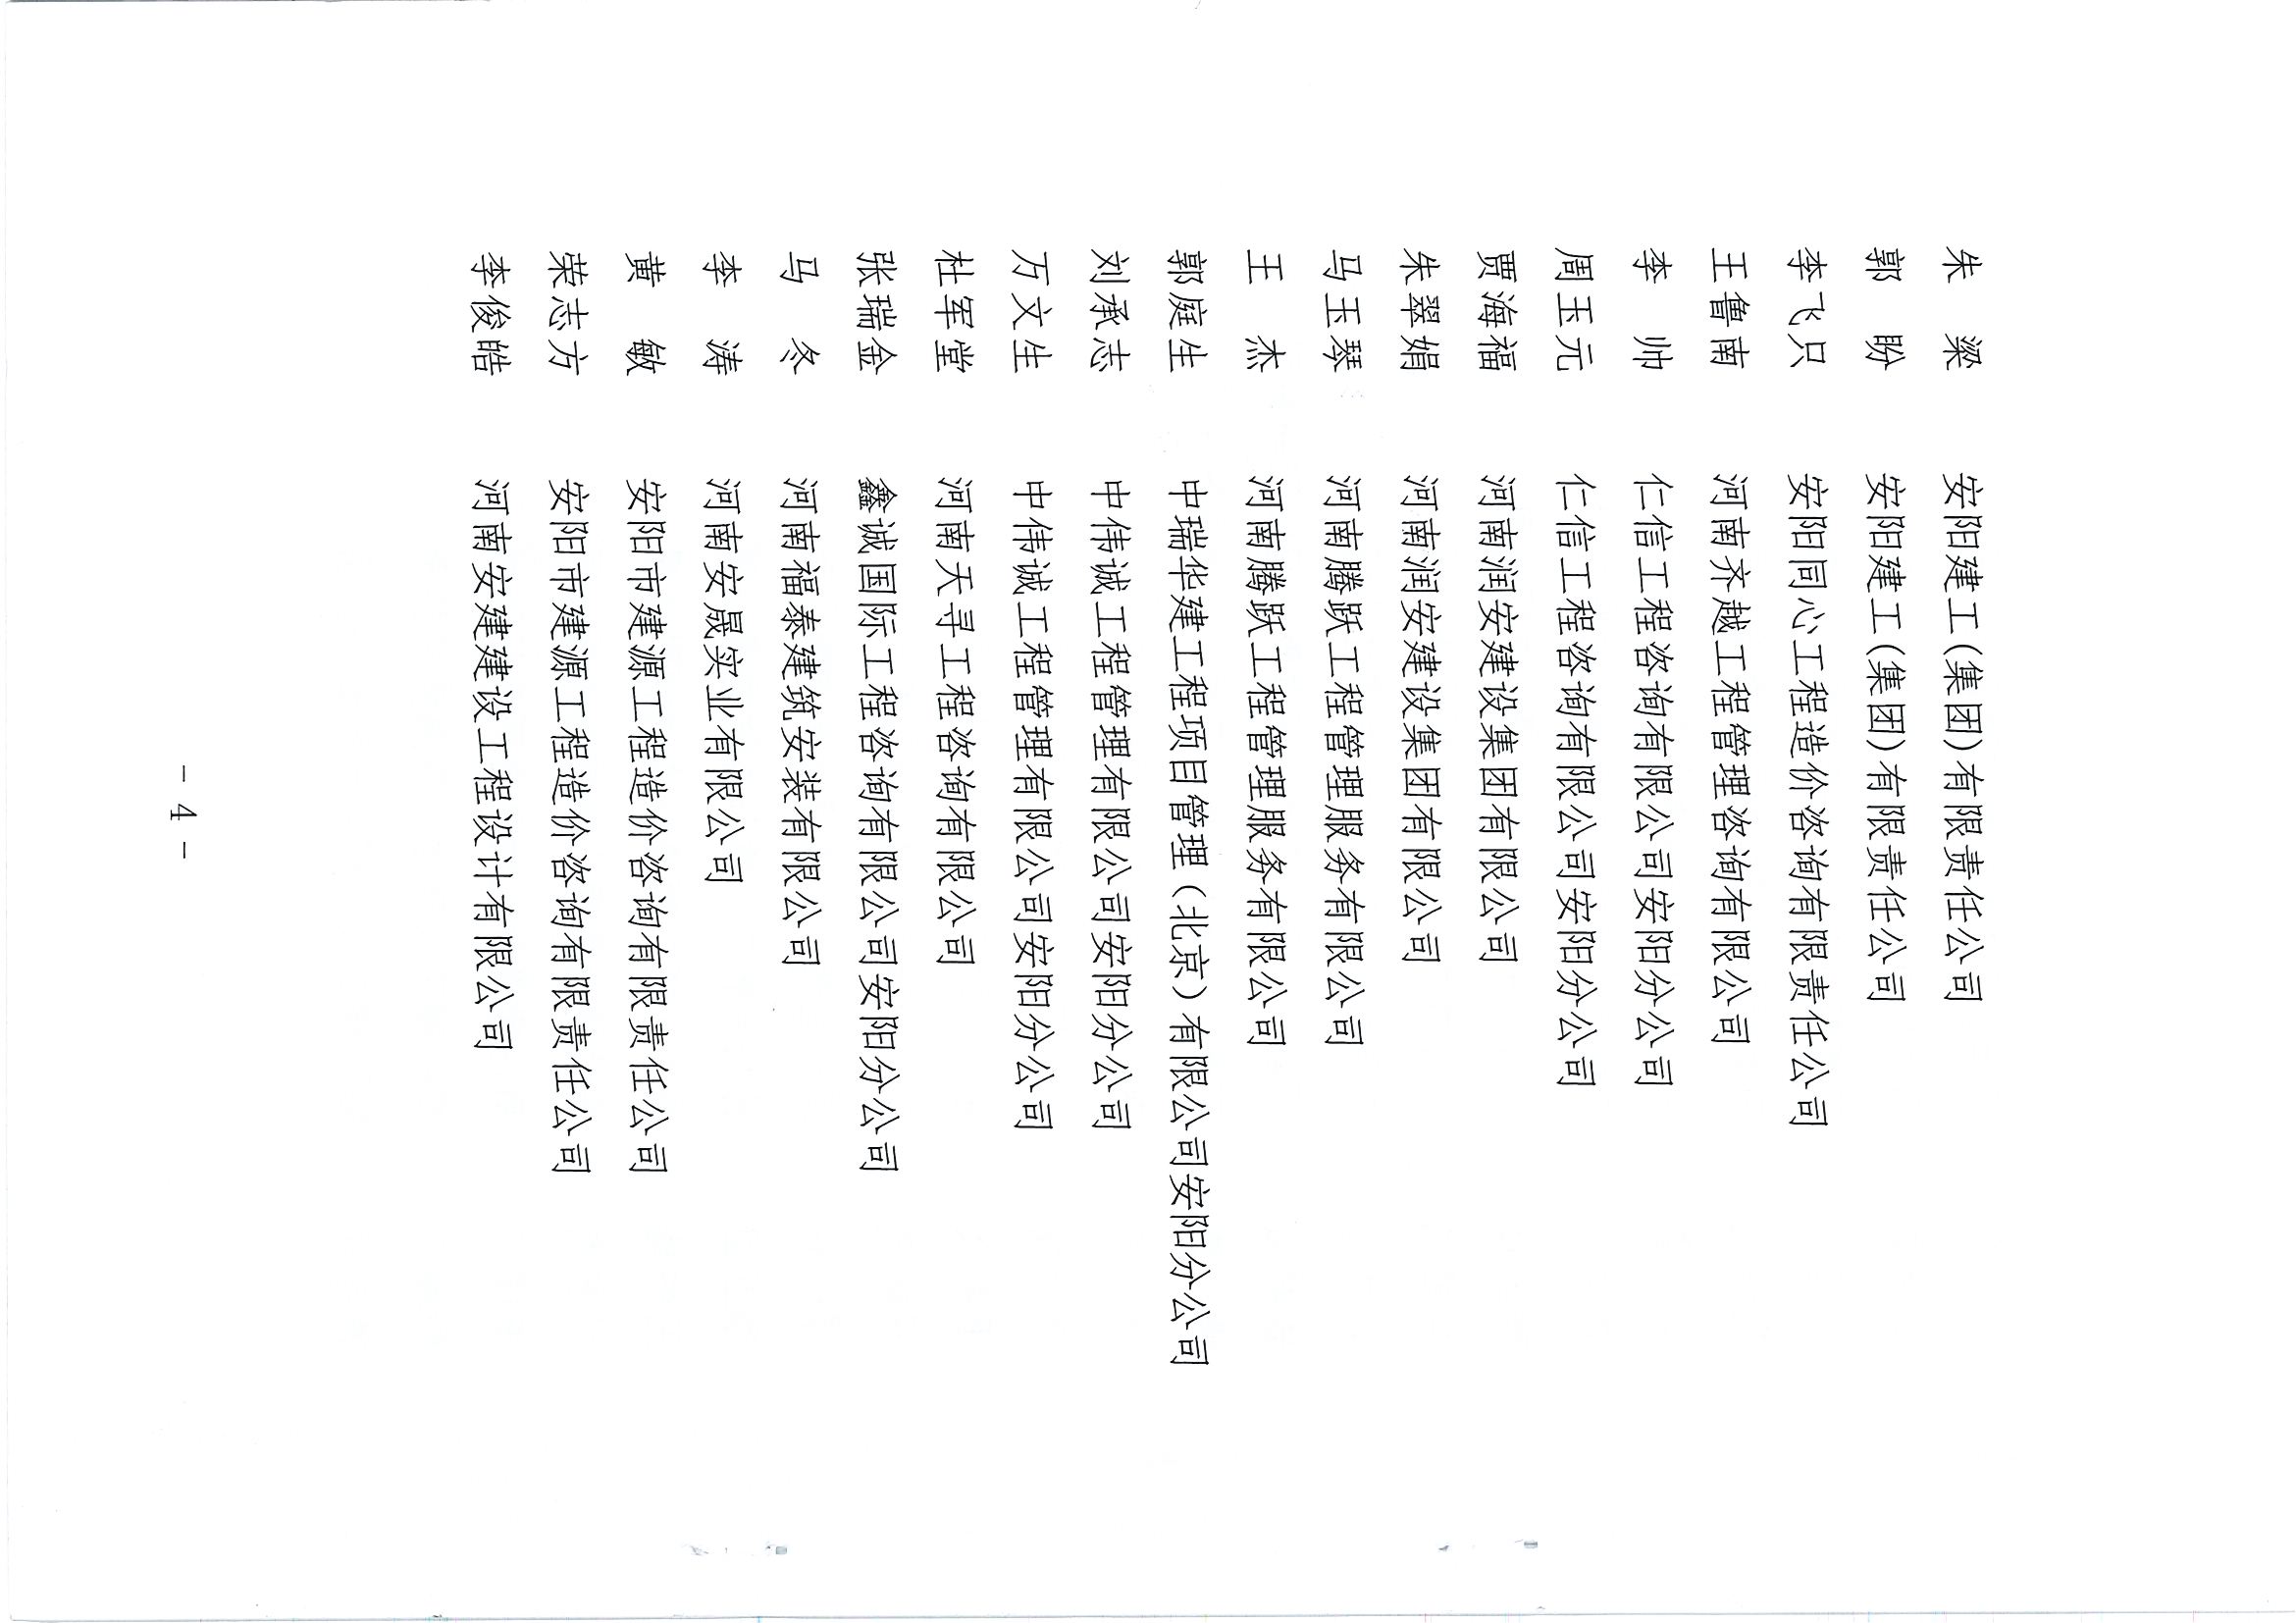 朱　梁　安阳建工(集团)有限责任公司
郭　盼　安阳建工(集团)有限责任公司
李飞只　安阳同心工程造价咨询有限责任公司
王鲁南　河南齐越工程管理咨询有限公司
李　帅　仁信工程咨询有限公司安阳分公司
周玉元　仁信工程咨询有限公司安阳分公司
贾海福　河南润安建设集团有限公司
朱翠娟　河南润安建设集团有限公司
马玉琴　河南腾跃工程管理服务有限公司
王　杰　河南腾跃工程管理服务有限公司
郭庭生　中瑞华建工程项目管理(北京)有限公司安阳分公司
刘承志　中伟诚工程管理有限公司安阳分公司
万文生　中伟诚工程管理有限公司安阳分公司
杜军堂　河南天寻工程咨询有限公司
张瑞金　鑫诚国际工程咨询有限公司安阳分公司
马　冬　河南福泰建筑安装有限公司
李　涛　河南安晟实业有限公司
黄　敏　安阳市建源工程造价咨询有限责任公司
荣志方　安阳市建源工程造价咨询有限责任公司
李俊皓　河南安建建设工程设计有限公司
- 4 -